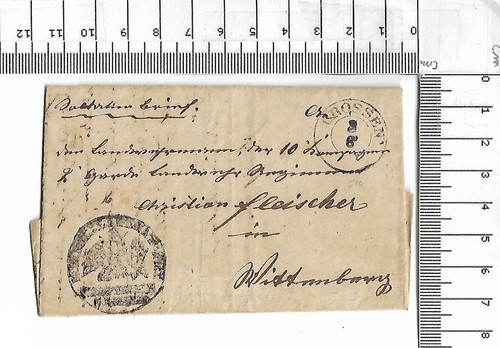 12 11 10 9 8 7 6 5 4 3 2 1 0
cm
cm
0
1
2
3
4
5
6
7
8
Soldaten Brief.
An
CROSSEN
8
8
den Landwehrmann, der 10 Kompagnie
2 Garde Landwehr Regiment
Christian Fleischer
in
Wittenberg